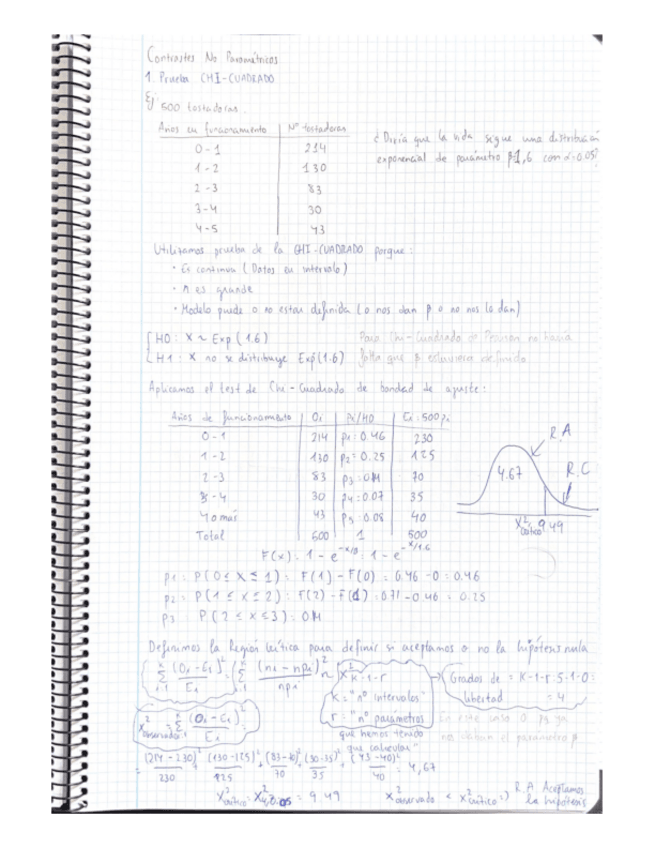 Contrastes No Paramétricos
1. Prueba CHI-CUADRADO
Ej: 500 tostadoras.
Años en funcionamiento | Nº tostadoras
0-1 214
1-2 130
2-3 83
3-4 30
4-5 43
¿Diría que la vida sigue una distribución
exponencial de parámetro β 1,6 con α=0.05?
Utilizamos prueba de la CHI-CUADRADO porque:
• Es continua (Datos en intervalo)
• n es grande
• Modelo puede o no estar definida (o nos dan β o no nos la dan)
H0: X ~ Exp (1.6)
H1: X no se distribuye Exp(1.6)
Para Chi-Cuadrado de Pearson no haría
falta que β estuviera definido
Aplicamos el test de Chi-Cuadrado de bondad de ajuste:
Años de funcionamiento | Oi | Pi/H0 | Ei=500pi
0-1 214 p1=0.46 230
1-2 130 p2=0.25 125
2-3 83 p3=0.14 70
3-4 30 p4=0.07 35
4 o más 43 p5=0.08 40
Total 500 1 500
R.A
4.67
R.C
X² crítico = 9.49
F(x) = 1 - e^-x/β = 1 - e^-x/1.6
p1 = P(0 ≤ X ≤ 1) = F(1) - F(0) = 0.46 - 0 = 0.46
p2 = P(1 ≤ x ≤ 2) = F(2) - F(1) = 0.71 - 0.46 = 0.25
p3 = P(2 ≤ x ≤ 3) = 0.14
Definimos la Región Crítica para definir si aceptamos o no la hipótesis nula
Σ (Oi - Ei)² / Ei = Σ (ni - npi)² / npi ~ X² k-1-r
Grados de libertad = K-1-r = 5-1-0 = 4
k = "nº intervalos"
r = "nº parámetros
que hemos tenido
que calcular"
En este caso 0 pq ya
nos daban el parámetro β
X² observado = Σ (Oi - Ei)² / Ei =
= (214-230)²/230 + (130-125)²/125 + (83-70)²/70 + (30-35)²/35 + (43-40)²/40 = 4,67
X² crítico = X² 4,0.05 = 9.49
X² observado < X² crítico => R.A Aceptamos
la hipótesis